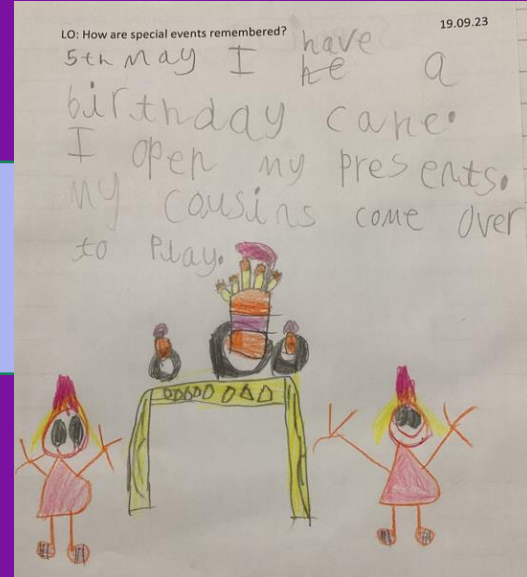 LO: How are special events remembered?
19.09.23
have
5th May I he a
birthday cake.
I open my presents.
my cousins come over
to Play.